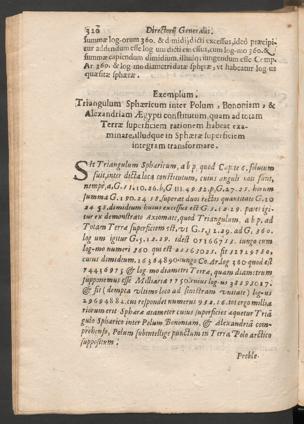 320 Directorij Generalis.
summæ log-orum 360. & dimidij dicti excessus, ideò præcipi-
tur addendum esse log-um dicti excessus, cum log-mo 360. &
summæ capiendum dimidium, illudq; iungendum esse Comp.
Ar. 360. & log-mo diametri datæ sphæræ, vt habeatur log-us
quæsitæ sphæræ.
Exemplum.
Triangulum Sphæricum inter Polum, Bononiam, &
Alexandriam Ægypti constitutum, quam ad totam
Terræ superficiem rationem habeat exa-
minare, illudque in Sphæræ superficiem
integram transformare.
Sit Triangulum Sphæricum, a b p, quod Cap. 16. solutum
fuit, inter dicta loca constitutum, cuius anguli tales sunt,
nempè, a, G. b, G. 111. 49. 52. p, G. 27. 25. horum
summa G. superat duos rectos quantitate G. 10
dimidium huius excessus est G. 5. 12. 29. pate igi-
tur ex demonstrato Axiomate, quod Triangulum, a b p, ad
Totam Terræ superficiem est, vti G. 5. 12. 29. ad G. 360.
log-um igitur G. 5. 12. 29. idest iungo cum
log-mo numeri 360. qui est fit
cuius dimidium. iungo Co. Ar. log. 360. quod est
& log-mo diametri Terræ, quam diametrum
supponimus esse Milliaria huius log-us
& fit (dempta vltimo loco ad sinistram vnitate) log-us
cui respondet numerus tot ergo millia-
riorum erit Sphæræ diameter cuius superficies æquetur Triã-
gulo Sphærico inter Polum Bononiam, & Alexandriã com-
prehenso, Polum subintellige punctum in Terra Polo arctico
suppositum.
Proble-